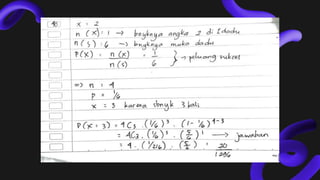 x = 2
n (x) : 1 → byknya angka 2 di 1 dadu
n (s) : 6 → byknya muka dadu
P(x) = n(x) / n(s) = 1/6 } → peluang sukses
=> n = 4
p = 1/6
x = 3 karena sbnyk 3 kali
P(x = 3) = 4C3 . (1/6)³ . (1 - 1/6)⁴⁻³
= 4C3 . (1/6)³ . (5/6)¹ → jawaban
= 4 . (1/216) . (5/6) = 20/1296